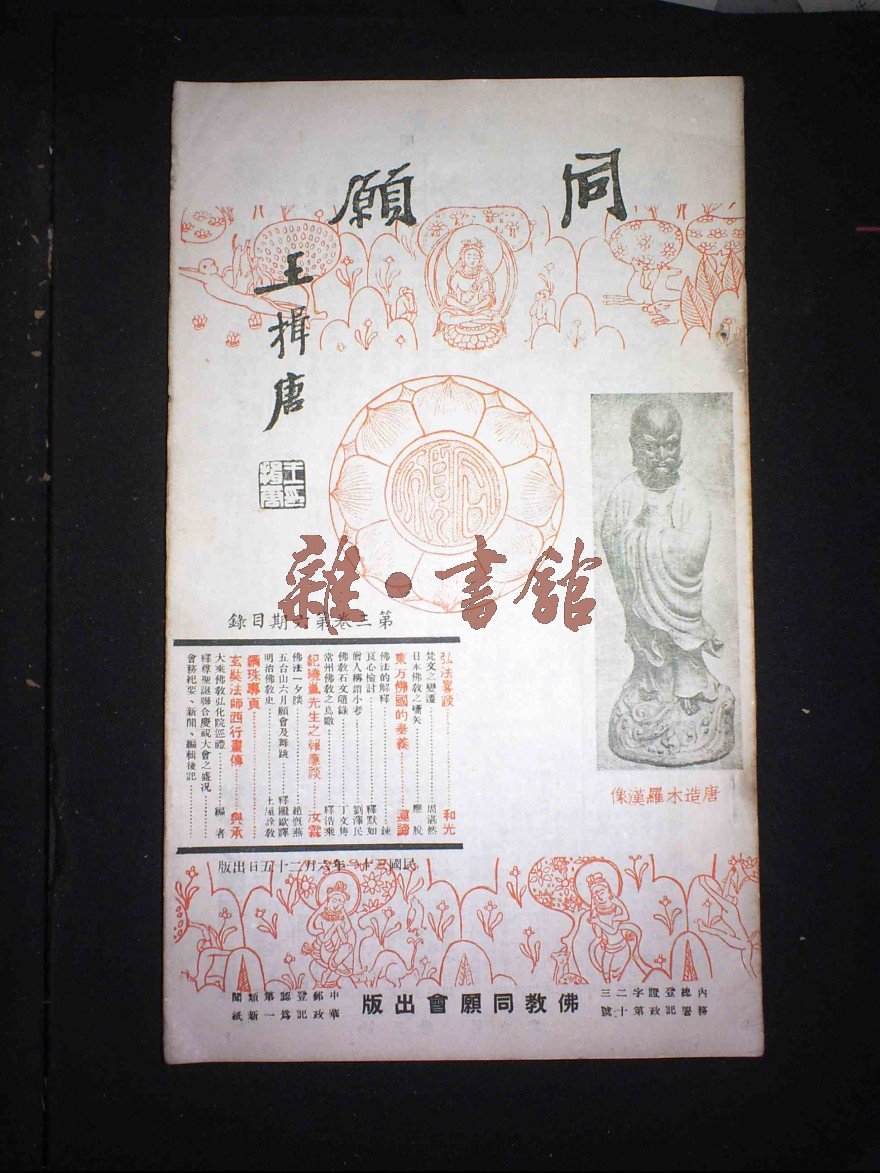 同願
王揖唐
雜·書館
唐造木羅漢像
第三卷第六期目錄
弘法畧談……和光
梵文之變遷……周湛然
日本佛教之嚆矢……塵脫
東方佛國的泰義……運論
佛法的解釋……鍊
良心檢討……釋默如
僧人稱謂小考……劉澤民
佛教石文隨錄……丁文雋
常州佛教之鳥瞰……釋浩乘
之報應談……汝霖
佛性一夕談……趙恆燕
五台山六月願會及舞跳……譯
明治佛教史……土屋詮教
專頁……
玄奘法師西行畫傳……與承
大乘佛教弘化院巡禮……編者
釋尊聖誕聯合慶祝大會之盛况……
會務紀要、新聞、編輯後記……
民國三十一年六月二十五日出版
佛教同願會出版
內務總署登記證政字第二十三號
中華郵政登記認爲第一類新聞紙